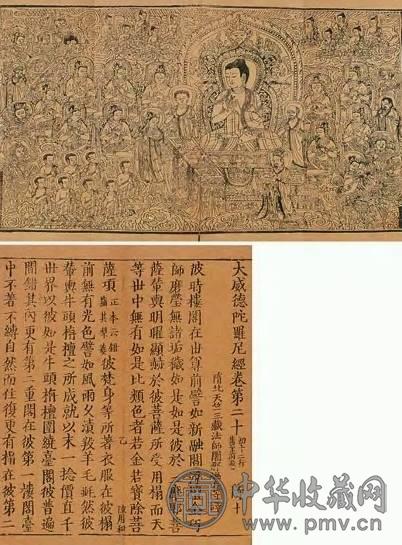 大威德陀羅尼經卷第二十
隋北天竺三藏法師闍那
彼時樓閣在世尊前譬如新融閻浮
師磨瑩無諸垢穢如是如是彼於菩
薩輦輿明曜顯赫於彼菩薩所受用榻而天
等世中無有如是比類色者若金若寶除菩
乙
薩項 正本云錯 彼梵身等所著衣服在彼
前無有光色譬如風雨久漬羖羊毛毼然彼
輦輿牛頭栴檀之所成就以末一捻價直千
世界以彼如是牛頭栴檀圍繞臺閣彼普遍
間錯其內更有第二重閣在彼第一樓閣臺
中不著不縛自然而住復更有榻在彼第二
中华收藏网
www.pmv.cn